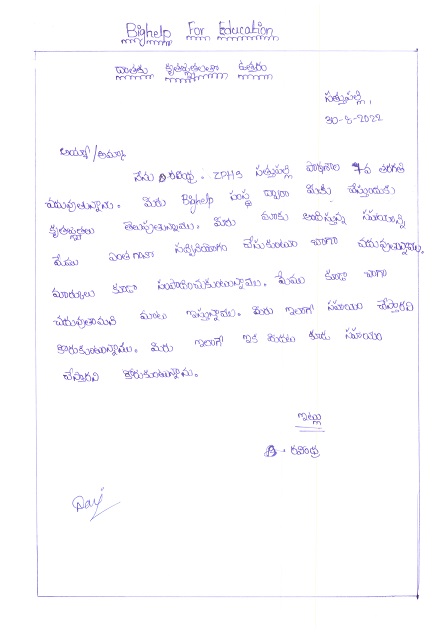 Bighelp For Education
దాతకు కృతజ్ఞతలతా ఉత్తరం
సత్తుపల్లి,
30-8-2022
అయ్యా/అమ్మా
నేను రవీంద్ర. ZPHS సత్తుపల్లి పాఠశాల 7వ తరగతి
చదువుతున్నాను. మీరు Bighelp సంస్థ ద్వారా మీకు చేస్తుందుకు
కృతజ్ఞతలు తెలుపుతున్నాము. మీరు మాకు అందిస్తున్న సహాయాన్ని
మేము ఎంతగానో సద్వినియోగం చేసుకుంటూ బాగా చదువుతున్నాము.
మార్కులు కూడా సంపాదించుకుంటున్నాము. మేము కూడా బాగా
చదువుతామని మాట ఇస్తున్నాము. మీరు ఇలాగే సహాయం చేస్తారని
కోరుకుంటున్నాము. మీరు ఇలాగే ఇక ముందు కూడా సహాయం
చేస్తారని కోరుకుంటున్నాను.
ఇట్లు
రవీంద్ర